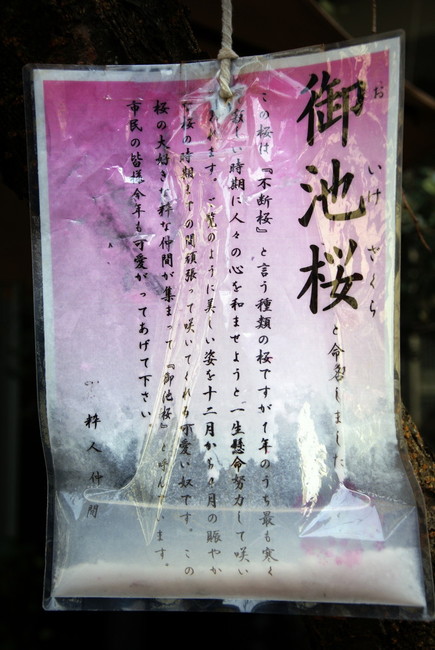 おいけざくら
御池桜 と命名しました
この桜は『不断桜』と言う種類の桜ですが1年のうち最も寒く
難しい時期に人々の心を和ませようと一生懸命努力して咲い
れます。ご覧のように美しい姿を十二月から 月の賑やか
桜の時期までの間頑張って咲いてくれる可愛い奴です。この
桜の大好きな粋な仲間が集まって『御池桜』と呼んでいます。
市民の皆様今年も可愛がってあげて下さい。
粋人仲間